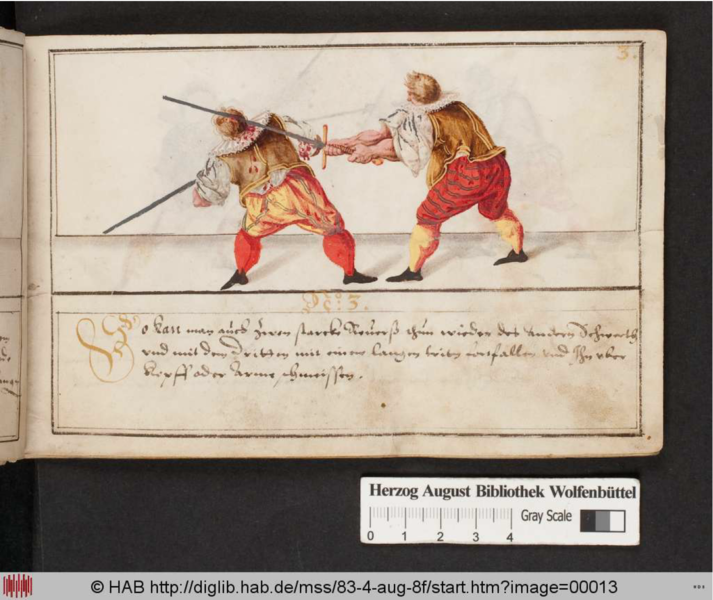 3.
No: 3.
So kan man auch Zwen starcke Reverß thun wieder des andern Schwerth
vnd mit dem Dritten mit einem langen tritt vortfallen vnd Ihn vber
Kopff oder Arme schmeissen.
Herzog August Bibliothek Wolfenbüttel
0 1 2 3 4
Gray Scale
© HAB http://diglib.hab.de/mss/83-4-aug-8f/start.htm?image=00013